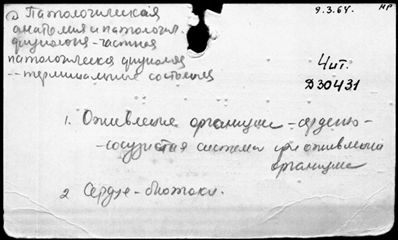 Патологическая
анатомия и патология.
физиология - частная
патологическая физиология
-- терминальные состояния
9.3.64.
НР
Чит.
Д30431
1. Оживление организма - сердечно-
-сосудистая система при оживлении
организма
2 Сердце - биотоки.